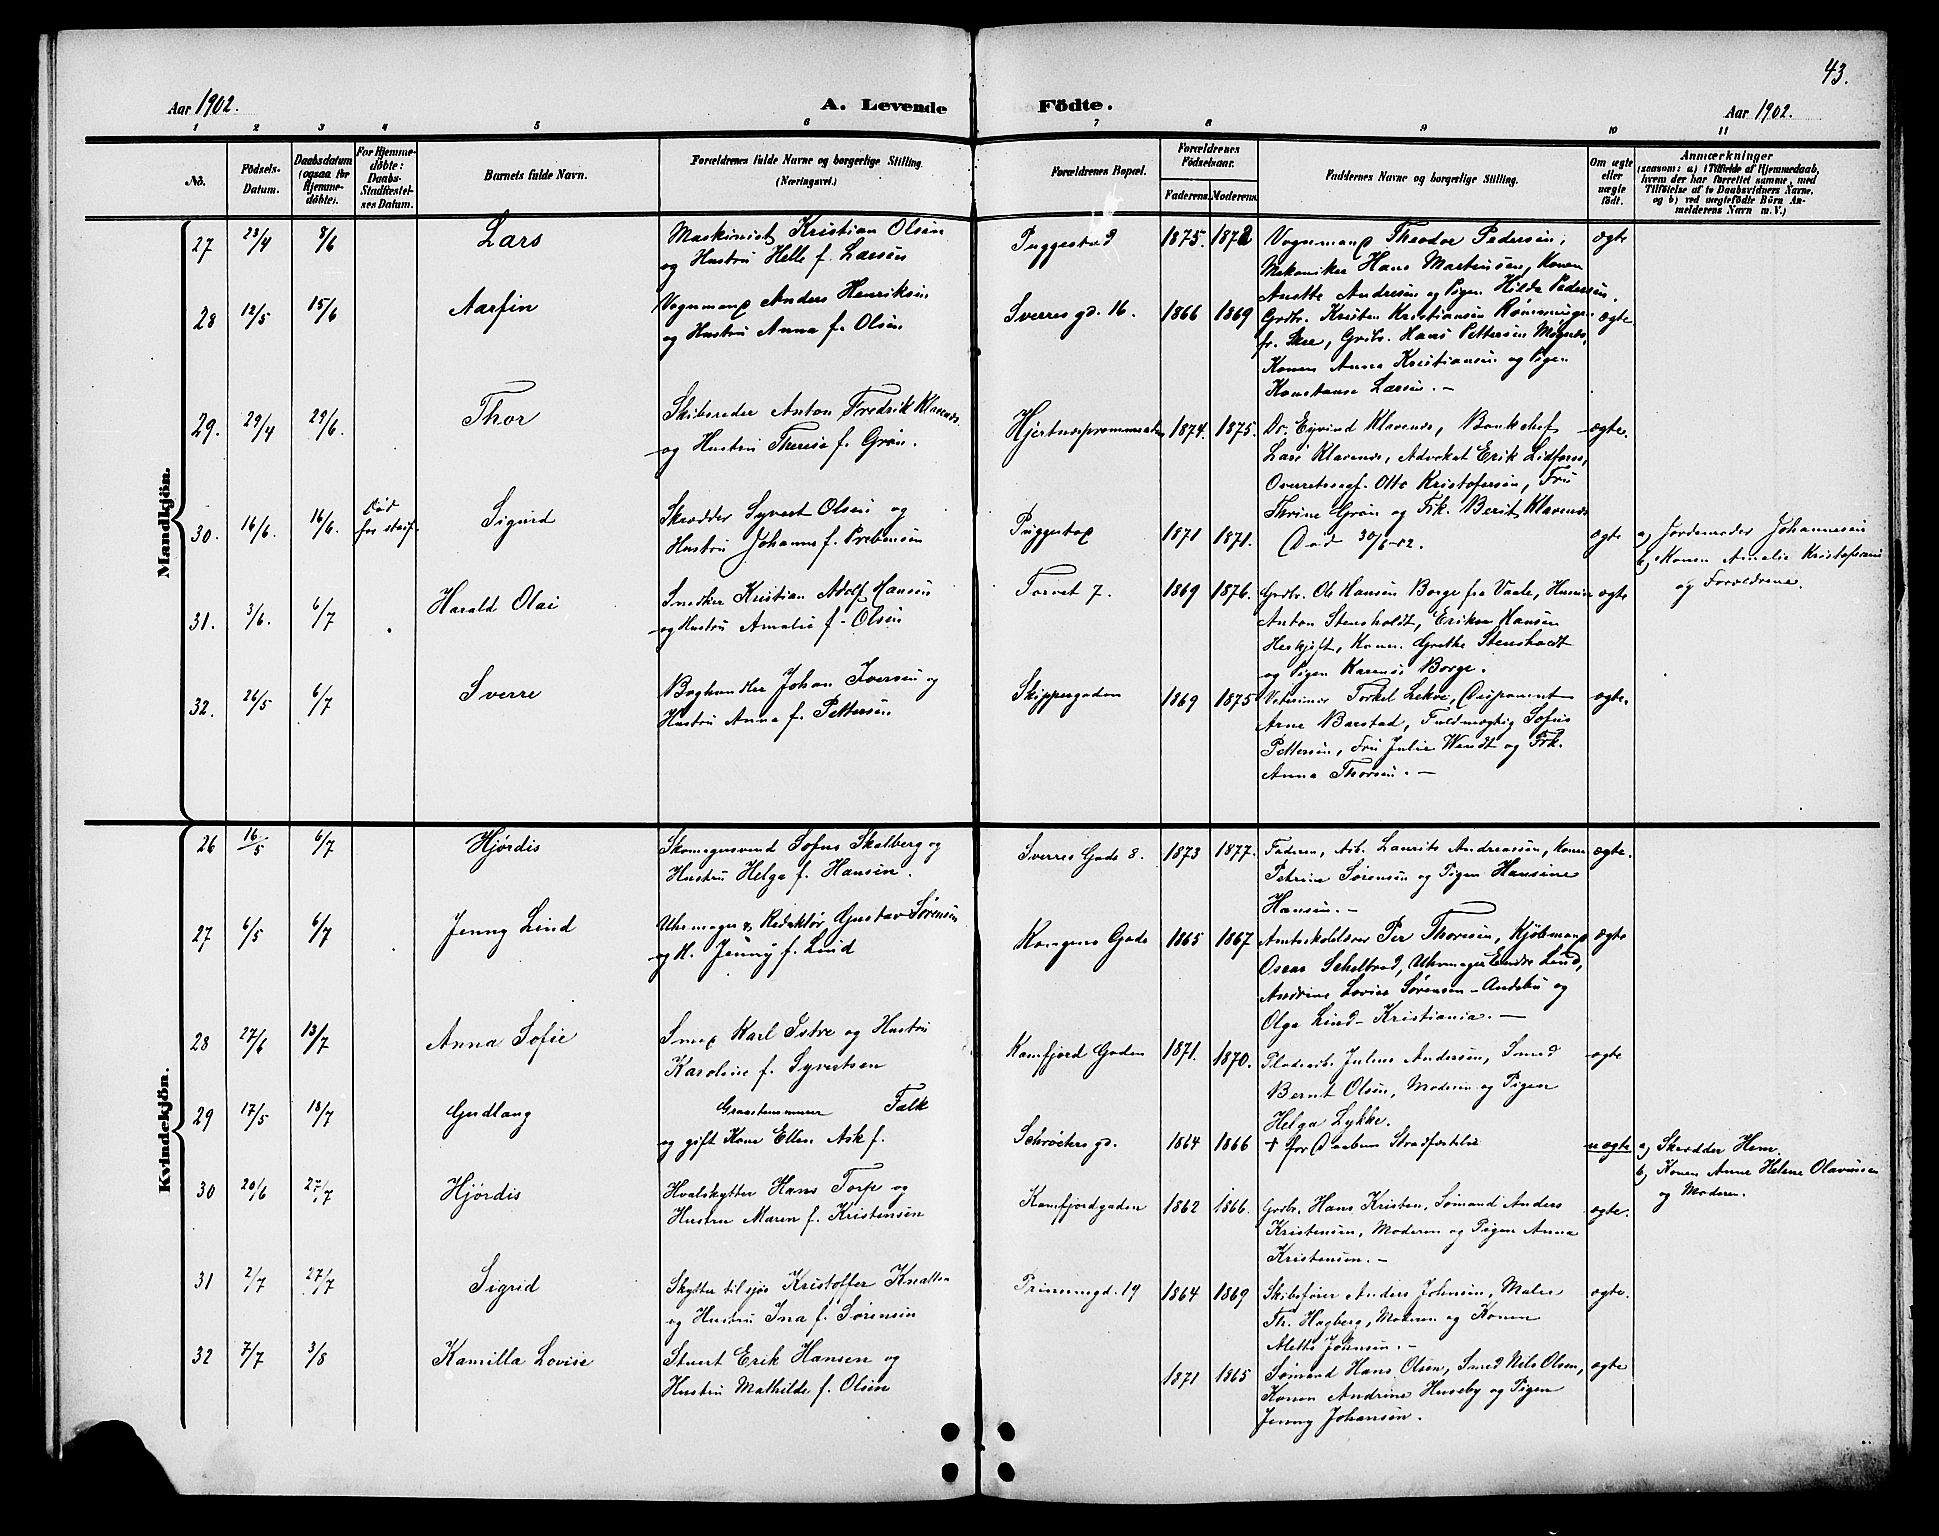 43.
Aar 1902.
A. Levende Födte.
Aar 1902.
1 2 3 4 5 6 7 8 9 10 11
No. Födsels-Datum. Daabsdatum (ogsaa for Hjemmedöbte). For Hjemmedöbte: Daabs-Stadfæstelses Datum. Barnets fulde Navn. Forældrenes fulde Navne og borgerlige Stilling. (Næringsvei.) Forældrenes Bopæl. Forældrenes Födselsaar. Faderens. Moderens. Faddernes Navne og borgerlige Stilling. Om ægte eller uægte födt. Anmærkninger (saasom: a) i Tilfælde af Hjemmedaab, hvem der har forrettet samme, med Tilföielse af to Daabsvidners Navne, og b) ved uægtefödte Börn Anmelderens Navn m. V.)
Mandkjön.
27 23/4 8/6 Lars Maskinist Kristian Olsen Puggestad 1875. 1872 Vognmand Theodor Pedersen, ægte
og Hustru Helle f. Larsen Mekaniker Hans Martinsen, Konen
Anette Andresen og Pigen Hilda Pedersen.
28 12/5 15/6 Aarfin Vognmand Anders Henriksen Sverres gd. 16. 1866 1869 Grdbr. Kristen Kristiansen ægte
og Hustru Anna f. Olsen Grdbr. Hans Pettersen
Konen Anna Kristiansen og Pigen
Konstanse Larsen. —
29. 29/4 29/6. Thor Skibsreder Anton Fredrik Klaveness 1874. 1875. Dr. Eyvind Klaveness, Bankchef ægte.
og Hustru Therese f. Grøn. Lars Klaveness, Advokat Erik Lidforss,
Overretssagf. Otto Kristofersen, Fru
Thrine Grøn og Frk. Berit Klaveness
30. 16/6. 16/6. Død før stadf. Sigurd Skrædder Syvert Olsen og 1871 1871. Død 30/6-02. ægte a, Jordemoder Johannesen
Hustru Johanne f. Prebensen b, Konen Amalie Kristofersen
og Forældrene.
31. 3/6. 6/7 Harald Olai Snedker Kristian Adolf Hansen Torvet 7. 1869 1876. Grdbr. Ole Hansen Borge fra Vaale, ægte
og Hustru Amalie f. Olsen Anton Stensholdt, Hansen
Grethe Stensholdt
og Pigen Borge.
32. 26/5 6/7 Sverre Boghandler Johan Iversen og Skippergaden 1869 1875 Veterinær Torkel Lekve, Disponent ægte.
Hustru Anna f. Pettersen Arne Barstad, Fuldmægtig Sofus
Pettersen, Fru Julie Wendt og Frk.
Anna Thorsen. —
Kvindekjön.
26 16/5 6/7 Hjørdis Skomagersvend Sofus Skalberg og Sverres Gade 8. 1873 1877. Faderen, Arb. Laurits Andreassen, Konen ægte.
Hustru Helga f. Hansen. Petrine Sørensen og Pigen Hansine
Hansen. —
27 6/5 6/7 Jenny Lind Uhrmager & Redaktør Gustav Sørensen Kongens Gade 1865 1867 Amtsskolelærer Per Thoresen, Kjøbmand ægte
og H. Jenny f. Lind Oscar Uhrmager Lind,
Andrine Lovise Sørensen – Andebu og
Olga Lind – Kristiania. —
28 27/6 13/7 Anna Sofie Smed Karl Istre og Hustru Kamfjord Gaden 1871. 1870. Pladearb. Julius Andersen, Smed ægte
Karoline f. Syvertsen Bernt Olsen, Moderen og Pigen
Helga Lykke.
29 17/5 18/7 Gudlaug Falk 1864 1866 † før Daabens Stadfæstelse uægte a, Skrædder Hem.
og gift Kone Ellen Ask f. b, Konen Anne Helene Olavesen
og Moderen.
30 20/6 27/7 Hjørdis Hvalskytter Hans Torp og Kamfjordgaden 1862 1866. Grdbr. Hans Kristen, Sømand Anders ægte.
Hustru Maren f. Kristensen Kristensen, Moderen og Pigen Anna
Kristensen. —
31 2/7 27/7 Sigrid Skytter tilsjøs Kristoffer Knatten Prinsensgd. 19 1864 1869 Skibsfører Anders Johnsen, Maler ægte.
og Hustru Ina f. Sørensen Th. Hagberg, Moderen og Konen
Alette Johnsen. —
32 7/7 3/8 Kamilla Lovise Stuert Erik Hansen og 1871 1865 Sømand Hans Olsen, Smed Nils Olsen, ægte
Hustru Mathilde f. Olsen Konen Andrine Huseby og Pigen
Jenny Johansen.